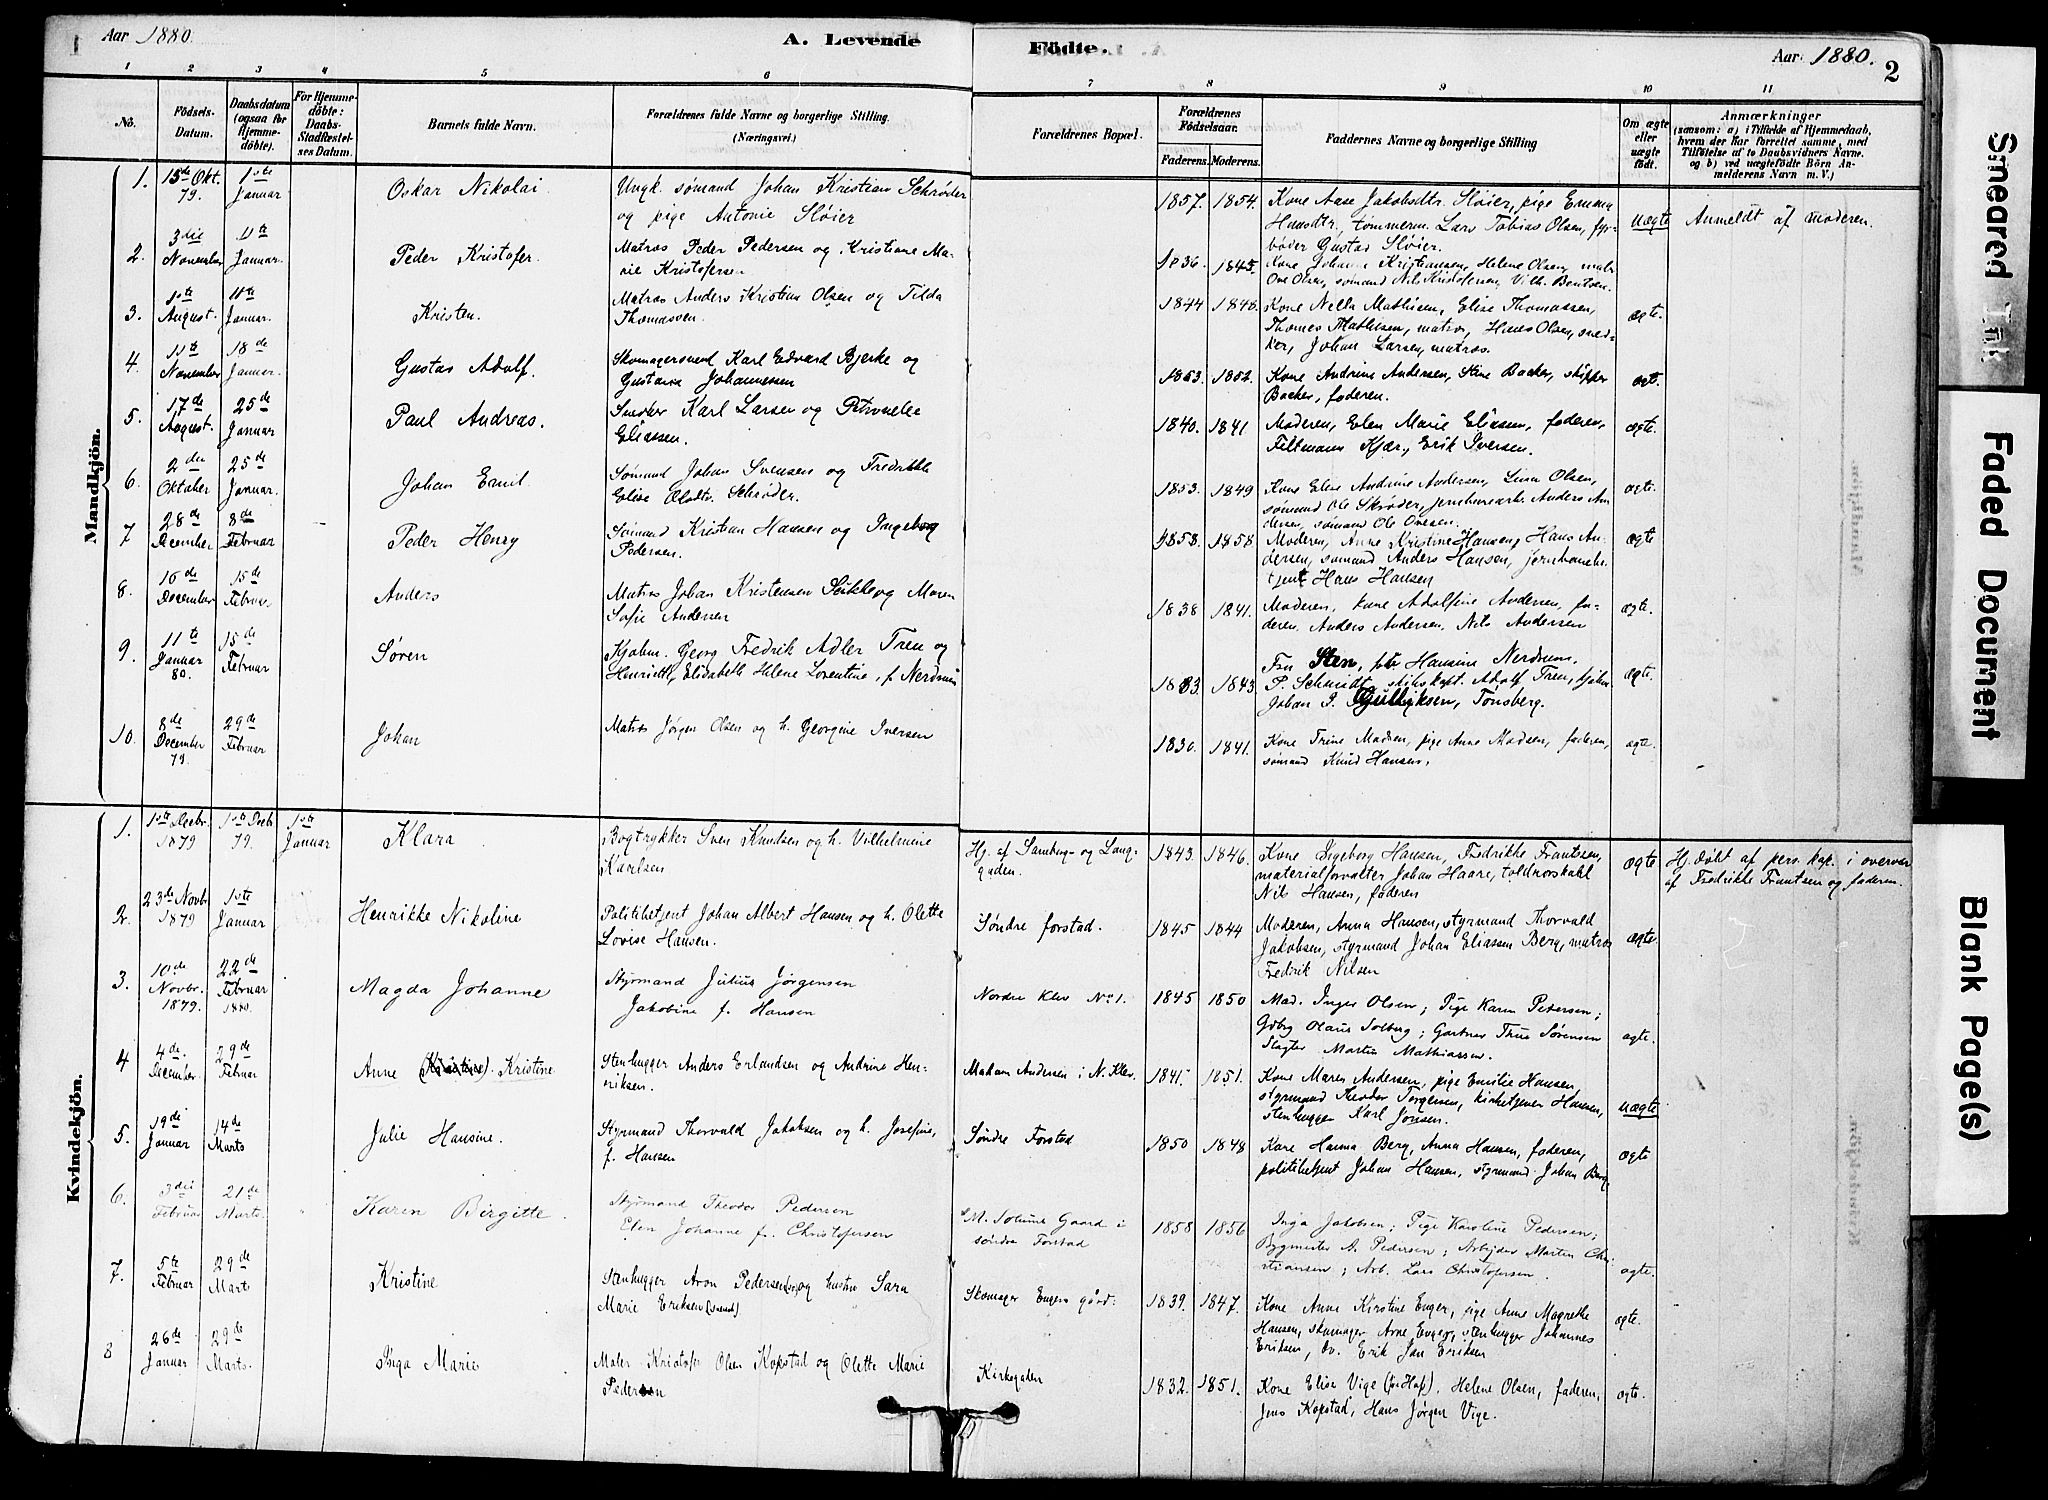 Aar 1880.
A. Levende
Födte.
Aar 1880.
2
1 2 3 4 5 6
7 8 9 10 11
No.
Födsels-
Datum.
Daabsdatum
(ogsaa for
Hjemme-
döbte).
For Hjemme-
döbte:
Daabs-
Stadfæstel-
ses Datum.
Barnets fulde Navn.
Forældrenes fulde Navne og borgerlige Stilling.
(Næringsvei.)
Forældrenes Bopæl.
Forældrenes
Födselsaar.
Faderens. Moderens.
Faddernes Navne og borgerlige Stilling
Om ægte
eller
uægte
födt.
Anmærkninger
(saasom: a) i Tilfælde af Hjemmedaab,
hvem der har forrettet samme, med
Tilföielse af to Daabsvidners Navne.
og b) ved uægtefödte Börn An-
melderens Navn m. V.)
Mandkjön.
1. 15de Okt. 79. 1ste Januar
Oskar Nikolai
Ungk. sømand Johan Kristian Schrøder
og pige Antonie Sløier
1857. 1854.
Kone Aase Jakobsdtr. Sløier, pige Emma
Hansdtr, tømmerm. Lars Tobias Olsen, fyr-
bøder Gustav Sløier.
uægte
Anmeldt af moderen.
2. 3die November 11te Januar.
Peder Kristofer
Matros Peder Pedersen og Kristiane Ma-
rie Kristofersen
1836. 1845.
Kone Johanne Kristiansen, Helene Olsen, matr.
Ove Olsen, sømand Nils Kristofersen, Vilh. Bentsen.
3. 1ste August. 11te Januar.
Kristen.
Matros Anders Kristian Olsen og Tilda
Thomassen.
1844 1846.
Kone Nella Mathisen, Elise Thomassen,
Thomas Mathisen, matros, Hans Olsen, sned-
ker, Johan Larsen, matros.
ægte.
4. 11te November 18de Januar.
Gustav Adolf.
Skomagersvend Karl Edvard Bjerke og
Gustava Johannesen
1853. 1852.
Kone Andrine Andersen, Stine Backer, skipper
Backer, faderen.
ægte.
5. 17de August. 25de Januar
Paul Andreas.
Snedker Karl Larsen og Petronelle
Eliassen.
1840. 1841
Moderen, Elen Marie Eliassen, faderen,
Feltmann Kjær, Erik Iversen.
ægte.
6. 2den Oktober 25de Januar.
Johan Emil.
Sømand Johan Svensen og Fredrikke
Elise Olsdtr Schrøder.
1853. 1849
Kone Elise Andrine Andersen, Lina Olsen,
sømand Ole Skrøder, jernbanearb. Anders An-
dersen, sømand Ole Ovesen.
ægte.
7 28de December 8de Februar
Peder Henry
Sømand Kristian Hansen og Ingeborg
Pedersen.
1858. 1858
Moderen, Anne Kristine Hansen, Hans An-
dersen, sømand Anders Hansen, jernbane-
tjent Hans Hansen
ægte
8. 16de December 15de Februar.
Anders
Matros Johan Kristensen Seikle og Maren
Sofie Andersen
1838 1841.
Moderen, kone Adolfine Andersen, fa-
deren, Anders Andersen, Nils Andersen
ægte.
9. 11te Januar 80. 15de Februar
Søren
Kjøbm. Georg Fredrik Adler Tren og
Henriette Elisabeth Helene Lorentine, f. Nerdrum
1833. 1843.
Fru Sten, frk Hansine Nerdrum.
P. Schmidt, skibskapt. Adolf Tren, kjøbm.
Johan P. Gulliksen, Tønsberg.
ægte.
10. 8de December 79. 29de Februar
Johan
Matros Jørgen Olsen og h. Georgine Iversen
1830. 1841.
Kone Trine Madsen, pige Anne Madsen, faderen,
sømand Knud Hansen.
ægte.
Kvindekjön.
1. 1ste Decbr. 1879 1ste Decb. 79. 1ste Januar
Klara
Bogtrykker Sven Knudsen og h. Vilhelmine
Karlsen
Hj. af Samberg- og Lang-
gaden.
1843. 1846.
Kone Ingeborg Hansen, Fredrikke Frantsen,
materialforvalter Johan Haare, toldrorskahl
Nils Hansen, faderen
ægte
Hj. døbt af pers. kap. i overvær
af Fredrikke Frantsen og faderen.
2. 23de Novbr 1879 1ste Januar
Henrikke Nikoline
Politibetjent Johan Albert Hansen og h. Olette
Lovise Hansen.
Søndre forstad.
1845 1844
Moderen, Anna Hansen, styrmand Thorvald
Jakobsen, styrmand Johan Eliassen Berg, matros
Fredrik Nilsen
ægte.
3. 10de Novbr. 1879. 22de Februar 1880.
Magda Johanne
Styrmand Julius Jørgensen
Jakobine f. Hansen
Nordre Klev No 1.
1845 1850
Mad. Inger Olsen; Pige Karen Petersen;
Gdbrg Olaus Solberg; Gartner Thus Sørensen
Slagter Martin Mathiassen.
ægte.
4 4de December 29de Februar
Anne (Kristine). Kristine
Stenhugger Anders Erlandsen og Andrine Hen-
riksen.
Madam Andersen i N. Klev.
1841. 1851.
Kone Maren Andersen, pige Emilie Hansen,
styrmand Theodor Torgersen, kirketjener Hansen,
stenhugger Karl Jonsen.
uægte
5. 19de Januar 14de Marts
Julie Hansine.
Styrmand Thorvald Jakobsen og h. Josefine,
f. Hansen
Søndre Forstad
1850 1848
Kare Hanna Berg, Anna Hansen, faderen,
politibetjent Johan Hansen, styrmand Johan Berg
ægte
6. 3die Februar 21de Marts.
Karen Birgitte.
Styrmand Theodor Pedersen
Elen Johanne f. Christofersen
M. Solums Gaard i
søndre Forstad
1858 1856
Inga Jakobsen; Pige Karoline Pedersen;
Bygmester A. Pedersen; Arbejder Martin Chri-
stiansen; Arb. Lars Christofersen.
ægte.
7. 5te Februar 29de Marts
Kristine
Stenhugger Aron Pedersen og hustru Sara
Marie Eriksen
Skomager Engers gård.
1839. 1847.
Kone Anne Kirstine Enger, pige Anne Magrethe
Hansen, skomager Arne Enger, stenhugger Johannes
Eriksen, do. Erik Jan Eriksen
ægte.
8 26de Januar 29de Marts.
Inga Marie
Maler Kristofer Olsen Kopstad og Olette Marie
Pedersen
Kirkegaden
1832. 1851.
Kone Elise Vige, Helene Olsen, faderen,
Jens Kopstad, Hans Jørgen Vige.
ægte.
Smeared Ink
Faded Document
Blank Page(s)